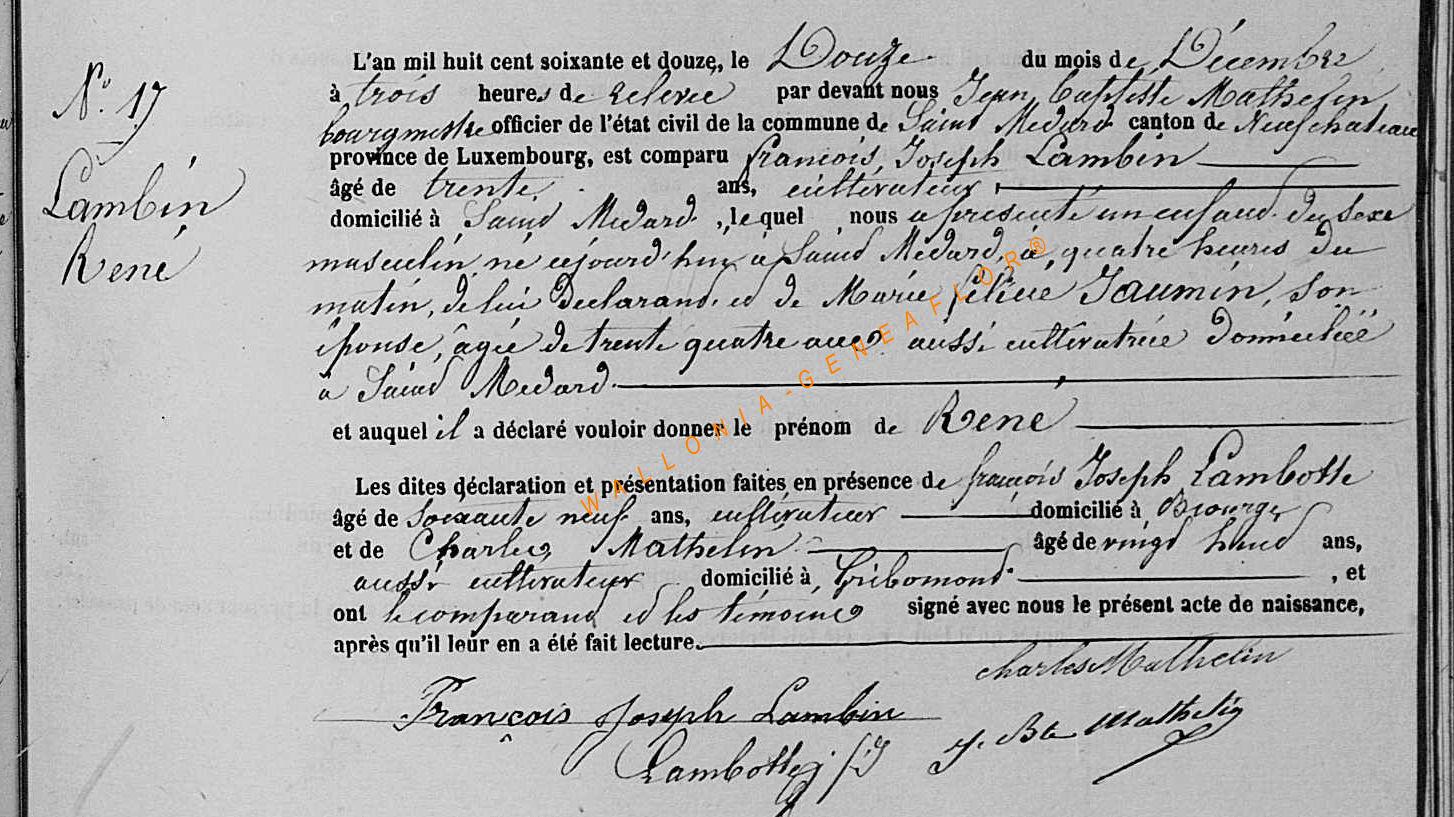 N° 17
Lambin
René
L'an mil huit cent soixante et douze, le Douze du mois de Décembre
à trois heures de relevée par devant nous Jean Baptiste Mathelin,
bourgmestre officier de l'état civil de la commune de Saint Médard canton de Neufchateau
province de Luxembourg, est comparu françois Joseph Lambin
âgé de trente ans, cultivateur
domicilié à Saint Médard, lequel nous a présenté un enfant du sexe
masculin, né cejourd'hui à Saint Médard, à quatre heures du
matin, de lui Déclarant et de Marie félicité Jaumin, son
épouse, âgée de trente quatre ans aussi cultivatrice domiciliée
à Saint Médard
et auquel il a déclaré vouloir donner le prénom de René
Les dites déclaration et présentation faites en présence de françois Joseph Lambotte
âgé de soixante neuf ans, cultivateur domicilié à Biourge
et de Charles Mathelin âgé de vingt huit ans,
aussi cultivateur domicilié à Gribomont, et
ont le comparant et les témoins signé avec nous le présent acte de naissance,
après qu'il leur en a été fait lecture.
Charles Mathelin
François Joseph Lambin
J. Bte Mathelin
Lambotte fJ
WALLONIA-GENEAFLOR®